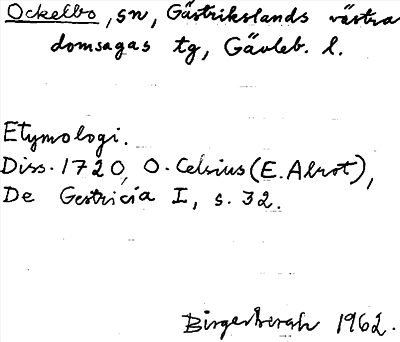 Ockelbo, sn, Gästrikslands västra
domsagas tg, Gävleb. l.
Etymologi.
Diss. 1720, O. Celsius (E. Alrot),
De Gestricia I, s. 32.
Birgerbergh 1962.